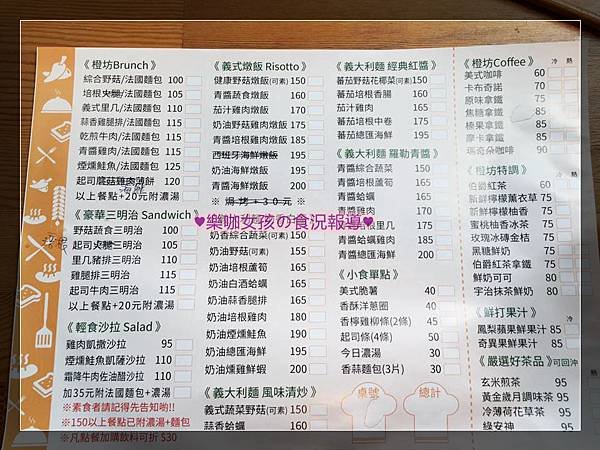 《 橙坊Brunch 》
綜合野菇/法國麵包 100
培根火腿/法國麵包 105
義式里几/法國麵包 110
蒜香雞腿排/法國麵包 115
乾煎牛肉/法國麵包 110
青醬雞肉/法國麵包 115
煙燻鮭魚/法國麵包 125
起司蘑菇雞肉薄餅 120
以上餐點+20元附濃湯
《 豪華三明治 Sandwich 》
野菇蔬食三明治 100
起司火腿三明治 105
培根
里几豬排三明治 110
雞腿排三明治 115
起司牛肉三明治 110
以上餐點+20元附濃湯
《 輕食沙拉 Salad 》
雞肉凱撒沙拉 95
煙燻鮭魚凱薩沙拉 110
霜降牛肉佐油醋沙拉 110
加35元附法國麵包+濃湯
※素食者請記得先告知喲!!
※150以上餐點已附濃湯+麵包
※凡點餐加購飲料可折 $30
《 義式燉飯 Risotto 》
健康野菇燉飯(可素) 150
青醬蔬食燉飯 160
茄汁雞肉燉飯 170
奶油野菇雞肉燉飯 175
青醬培根雞肉燉飯 185
西班牙海鮮燉飯 195
奶油海鮮燉飯 195
青醬海鮮燉飯 200
※ 焗烤+30元 ※
奶香綜合蔬菜(可素) 150
奶油野菇 155
奶油培根蘆筍 165
奶油白酒蛤蠣 165
奶油蒜香腿排 165
奶油培根雞肉 180
奶油煙燻鮭魚 190
奶油總匯海鮮 195
奶油煙燻雞蝦 200
《 義大利麵 風味清炒 》
義式蔬菜野菇(可素) 150
蒜香蛤蠣 160
《 義大利麵 經典紅醬 》
蕃茄野菇花椰菜(可素) 150
蕃茄培根香腸 160
茄汁雞肉 165
蕃茄培根中卷 175
蕃茄總匯海鮮 185
《 義大利麵 羅勒青醬 》
青醬綜合蔬菜 155
青醬培根蘆筍 165
青醬蛤蠣 165
青醬雞肉 170
培根里几 175
青醬蛤蠣雞肉 185
青醬總匯海鮮 200
♥樂咖女孩の食況報導♥
《 小食單點 》
美式脆薯 40
香酥洋蔥圈 40
香檸雞柳條(2條) 45
起司條(4條) 50
今日濃湯 30
香蒜麵包(3片) 30
桌號 總計
《 橙坊Coffee 》 冷 熱
美式咖啡 60
卡布奇諾 70
原味拿鐵 75
焦糖拿鐵 85
榛果拿鐵 85
摩卡拿鐵 85
瑞奇朵咖啡 90
《 橙坊特調 》 冷 熱
伯爵紅茶 60
新鮮檸檬薰衣草 75
新鮮檸檬柚香 75
蜜桃柚香冰茶 75
玫瑰冰磚金桔 75
黑糖鮮奶 75
伯爵紅茶拿鐵 75
鮮奶可可 80
宇治抹茶鮮奶 80
《 鮮打果汁 》 冷
鳳梨蘋果鮮果汁 85
奇異果鮮果汁 85
《 嚴選好茶品 》可回沖
玄米煎茶 95
黃金歲月調味茶 95
冷薄荷花草茶 95
綠安神 95